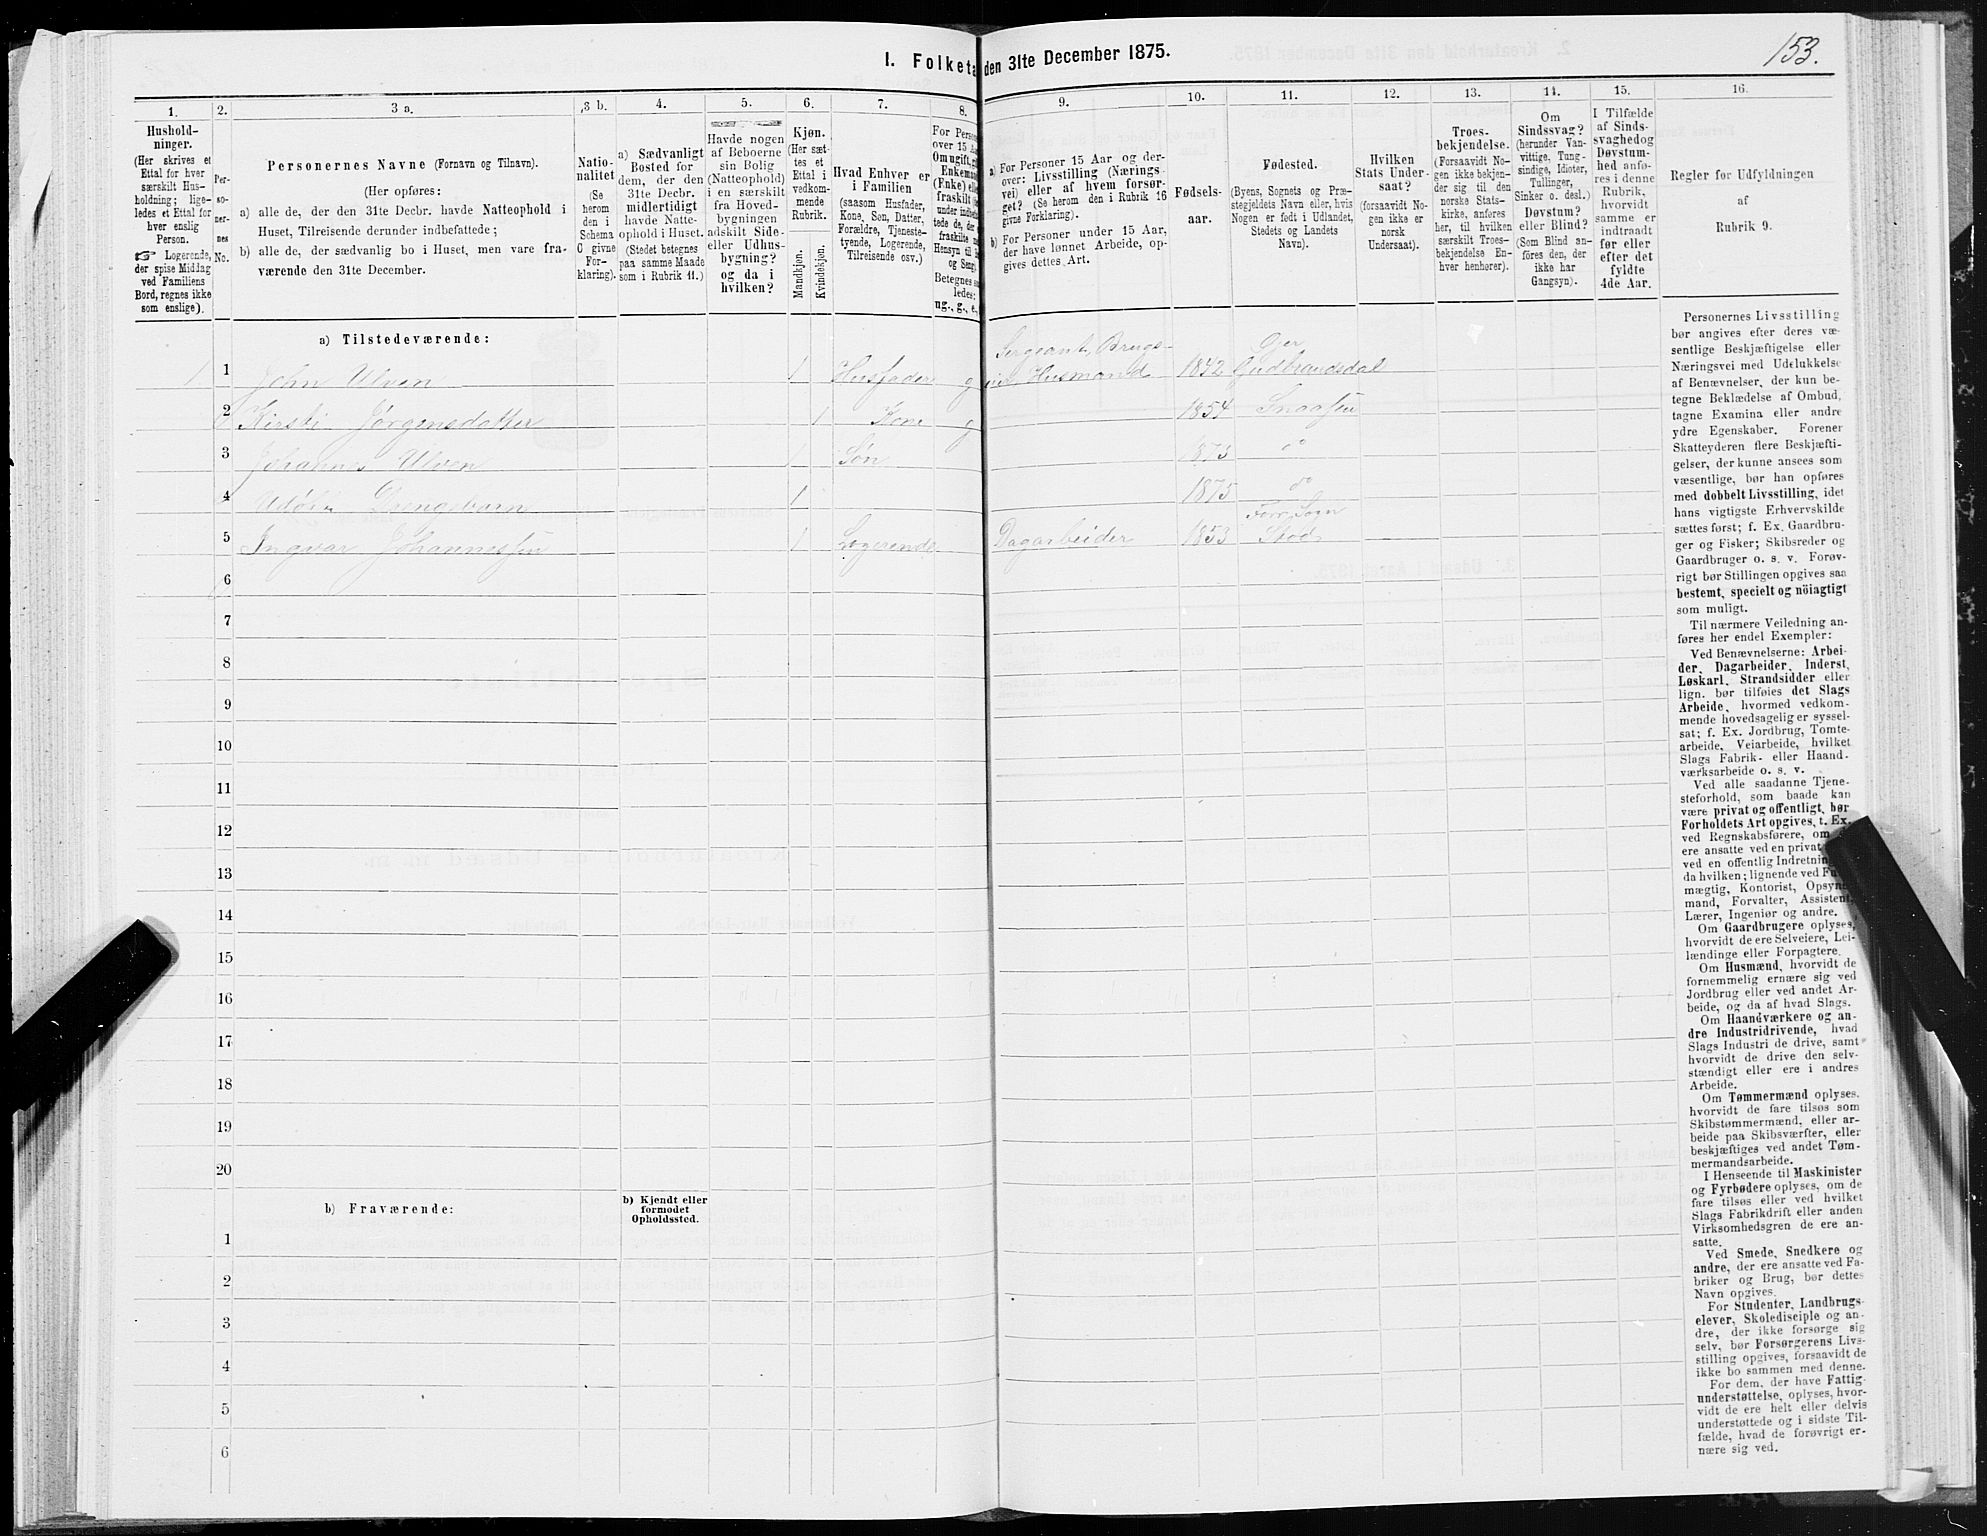 I. Folketa den 31te December 1875.
153.
1.
Hushold-
ninger.
(Her skrives et
Ettal for hver
særskilt Hus-
holdning; lige-
ledes et Ettal for
hver enslig
Person.
☞ Logerende,
der spise Middag
ved Familiens
Bord, regnes ikke
som enslige).
2.
Per-
so-
ner-
nes
No.
3 a.
Personernes Navne (Fornavn og Tilnavn).
(Her opføres:
a) alle de, der den 31te Decbr. havde Natteophold i
Huset, Tilreisende derunder indbefattede;
b) alle de, der sædvanlig bo i Huset, men vare fra-
værende den 31te December.
3 b.
Natio-
nalitet
(Se
herom
den i
Schema
C givne
For-
klaring).
4.
a) Sædvanligt
Bosted for
dem, der den
31te Decbr.
midlertidigt
havde Natte-
ophold i Huset.
(Stedet betegnes
paa samme Maade
som i Rubrik 11.)
5.
Havde nogen
af Beboerne
sin Bolig
(Natteophold)
i en særskilt
fra Hoved-
bygningen
adskilt Side-
eller Udhus-
bygning?
og da i
hvilken?
6.
Kjøn.
(Her sæt-
tes et
Ettal i
vedkom-
mende
Rubrik.
Mandkjøn.
Kvindekjøn.
7.
Hvad Enhver er
i Familien
(saasom Husfader,
Kone, Søn, Datter,
Forældre, Tjeneste-
tyende, Logerende,
Tilreisende osv.)
8.
For Perso
over 15 A
Om ugift, g
Enkema
(Enke) elle
fraskilt
under indb
tede de, der
fraskilte
Hensyn til
og Seng
Betegnes s
ledes:
ug., g., e.,
9.
a) For Personer 15 Aar og der-
over: Livsstilling (Nærings-
vei) eller af hvem forsør-
get? (Se herom den i Rubrik 16
givne Forklaring).
b) For Personer under 15 Aar,
der have lønnet Arbeide, op-
gives dettes Art.
10.
Fødsels-
aar.
11.
Fødested.
(Byens, Sognets og Præ-
stegjeldets Navn eller, hvis
Nogen er født i Udlandet,
Stedets og Landets
Navn).
12.
Hvilken
Stats Under-
saat?
(forsaavidt No-
gen ikke er
norsk
Undersaat).
13.
Troes-
bekjendelse.
(Forsaavidt No-
gen ikke bekjen-
der sig til den
norske Stats-
kirke, anføres
her, til hvilken
særskilt Troes-
bekjendelse En-
hver henhører).
14.
Om
Sindssvag?
(herunder Van-
vittige, Tung-
sindige, Idioter,
Tullinger,
Sinker o. desl.)
Døvstum?
eller Blind?
(Som Blind an-
føres den, der
ikke har
Gangsyn).
15.
I Tilfælde
af Sinds-
svaghed og
Døvstum-
hed anfø-
res i denne
Rubrik,
hvorvidt
samme er
indtraadt
før eller
efter det
fyldte
4de Aar.
16.
Regler for Udfyldningen
af
Rubrik 9.
a) Tilstedeværende:
1 1 John Ulven 1 Husfader g Sergeant, Brugs-
Husmand 1842 Gudbrandsdal
2 Kirsti Jørgensdatter 1 Kone g 1854 Snaasen
3 Johannes Ulven 1 Søn 1873 do
4 Udøbt Drengebarn 1 1875 do
5 Ingvar Johannessen 1 Logerende Dagarbeider 1853 Stod
6
7
8
9
10
11
12
13
14
15
16
17
18
19
20
b) Fraværende:
b) Kjendt eller
formodet
Opholdssted.
1
2
3
4
5
6
Personernes Livsstilling
bør angives efter deres væ-
sentlige Beskjæftigelse eller
Næringsvei med Udelukkelse
af Benævnelser, der kun be-
tegne Beklædelse af Ombud,
tagne Examina eller andre
ydre Egenskaber. Forener
Skatteyderen flere Beskjæfti-
gelser, der kunne ansees som
væsentlige, bør han opføres
med dobbelt Livsstilling, idet
hans vigtigste Erhvervskilde
sættes først; f. Ex. Gaardbru-
ger og Fisker; Skibsreder og
Gaardbruger o. s. v. Forøv-
rigt bør Stillingen opgives saa
bestemt, specielt og nöiagtigt
som muligt.
Til nærmere Veiledning an-
føres her endel Exempler:
Ved Benævnelserne: Arbei-
der, Dagarbeider, Inderst,
Løskarl, Strandsidder eller
lign. bør tilføies det Slags
Arbeide, hvormed vedkom-
mende hovedsagelig er syssel-
sat; f. Ex. Jordbrug, Tomte-
arbeide, Veiarbeide, hvilket
Slags Fabrik- eller Haand-
værksarbeide o. s. v.
Ved alle saadanne Tjene-
steforhold, som baade kan
være privat og offentligt, bør
Forholdets Art opgives, t. Ex.
ved Regnskabsførere, om
ere ansatte ved en privat
ved en offentlig Indretning
da hvilken; lignende ved Fu
mægtig, Kontorist, Opsyns
mand, Forvalter, Assistent,
Lærer, Ingeniør og andre.
Om Gaardbrugere oplyses,
hvorvidt de ere Selveiere, Lei-
lændinge eller Forpagtere.
Om Husmænd, hvorvidt de
fornemmelig ernære sig ved
Jordbrug eller ved andet Ar-
beide, og da af hvad Slags.
Om Haandværkere og an-
dre Industridrivende, hvad
Slags Industri de drive, samt
hvorvidt de drive den selv-
stændigt eller ere i andres
Arbeide.
Om Tømmermænd oplyses,
hvorvidt de fare tilsøs som
Skibstømmermænd, eller ar-
beide paa Skibsværfter, eller
beskjæftiges ved andet Tøm-
mermandsarbeide.
I Henseende til Maskinister
og Fyrbødere oplyses, om de
fare tilsøs eller ved hvilket
Slags Fabrikdrift eller anden
Virksomhedsgren de ere an-
satte.
Ved Smede, Snedkere og
andre, der ere ansatte ved Fa-
briker og Brug, bør dettes
Navn opgives.
For Studenter, Landbrugs-
elever, Skoledisciple og an-
dre, der ikke forsørge sig
selv, bør Forsørgerens Livs-
stilling opgives, forsaavidt de
ikke bo sammen med denne.
For dem, der have Fattig-
understøttelse, oplyses, hvor-
vidt de ere helt eller delvis
understøttede og i sidste Til-
fælde, hvad de forøvrigt er-
nære sig ved.